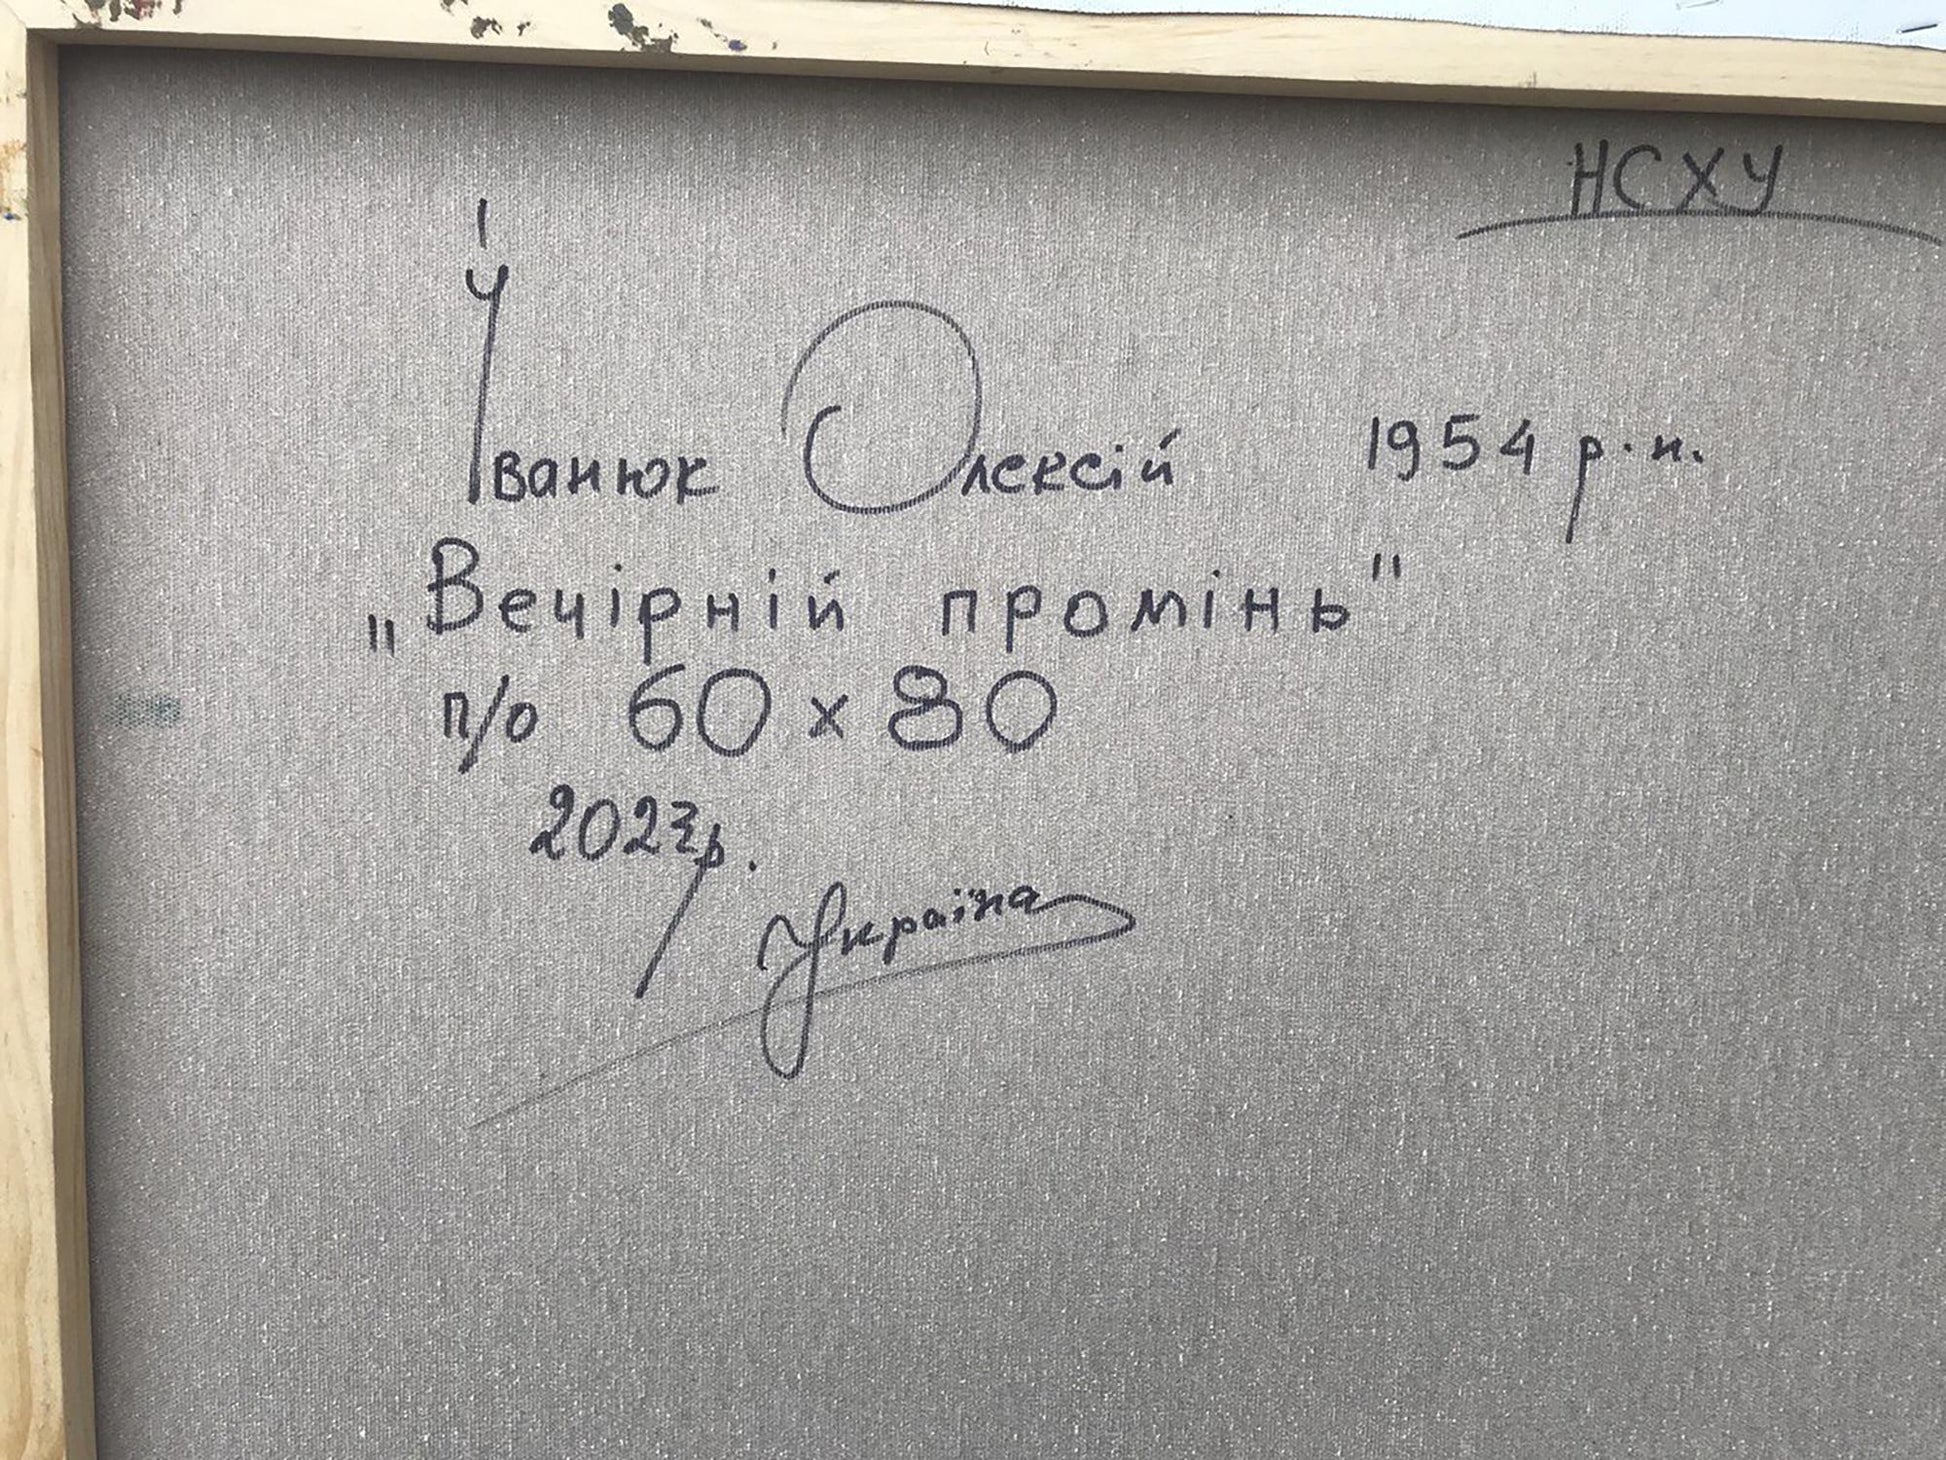 НСХУ
Іванюк Олексій 1954 р.н.
„Вечірній промінь"
п/о 60 x 80
2023р.
Україна